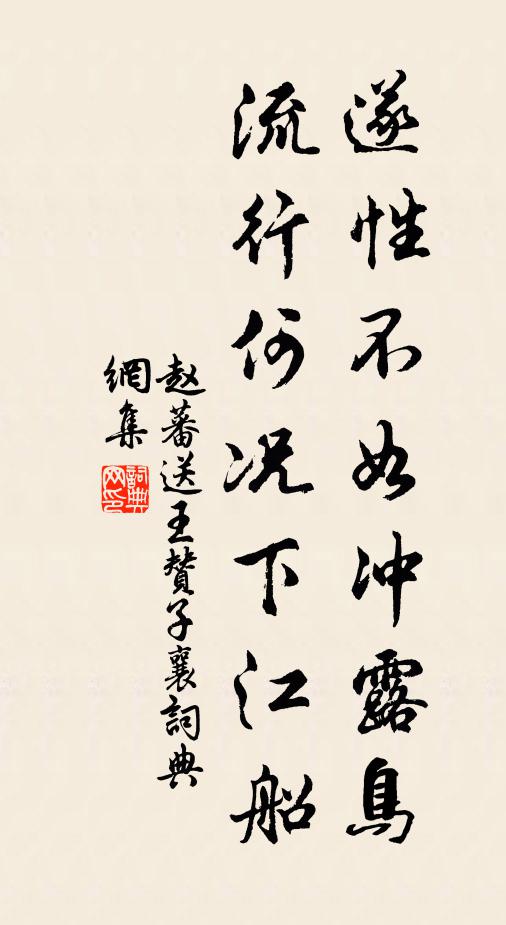 遂性不如冲露鳥
流行何况下江船
赵蕃送王賛子襄詞典
網集
詞典网印